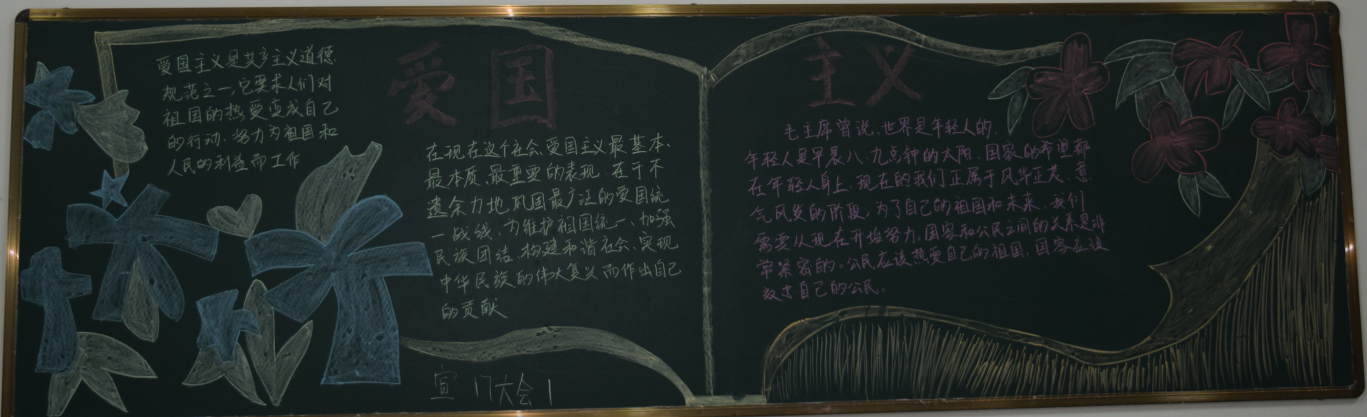 爱国主义
爱国主义是共产主义道德
规范之一,它要求人们对
祖国的热爱变成自己
的行动,努力为祖国和
人民的利益而工作
在现在这个社会,爱国主义最基本、
最本质、最重要的表现,在于不
遗余力地巩固最广泛的爱国统
一战线,为维护祖国统一、加强
民族团结、构建和谐社会、实现
中华民族的伟大复兴而作出自己
的贡献
毛主席曾说,世界是年轻人的,
年轻人是早晨八、九点钟的太阳,国家的希望都
在年轻人身上,现在的我们正属于风华正茂、意
气风发的阶段,为了自己的祖国和未来,我们
需要从现在开始努力,国家和公民之间的关系是非
常紧密的,公民应该热爱自己的祖国,国家应该
自己的公民。
大会